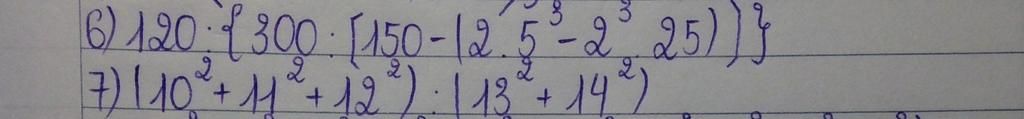 6) 120 : {300 : [150 - (2 . 5³ - 2³ . 25)]}
7) (10² + 11² + 12²) : (13² + 14²)